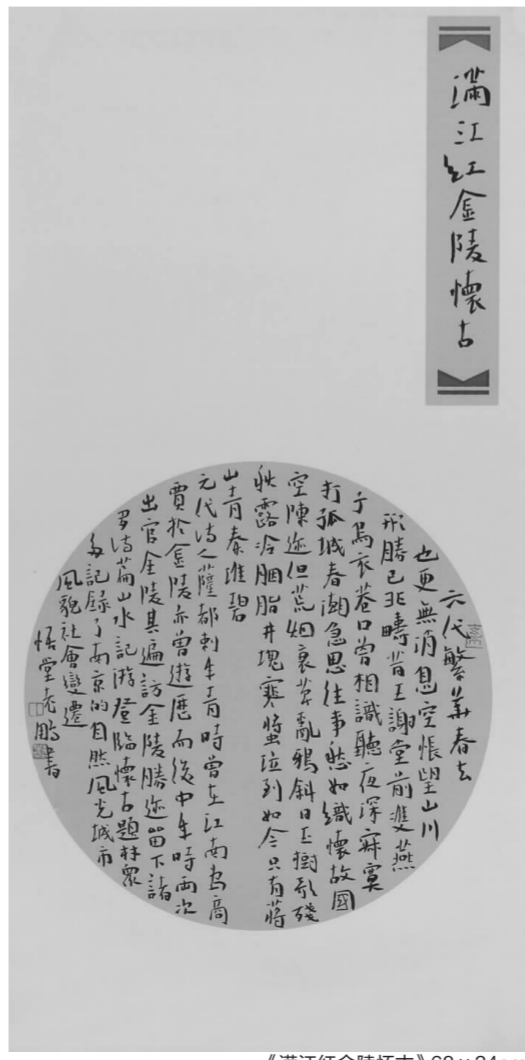 滿江紅金陵懷古
六代繁華春去
也更無消息空悵望山川
形勝已非疇昔王謝堂前雙燕
子烏衣巷口曾相識聽夜深寂寞
打孤城春潮急思往事愁如織懷故國
空陳迹但荒烟衰草亂鴉斜日玉樹歌殘
秋露冷胭脂井塊寒螿泣到如今只有蔣
山青秦淮碧
元代詩人薩都剌年青時曾在江南為商
賈於金陵亦曾遊歷而後中年時兩次
出官金陵其遍訪金陵勝迹留下諸
多詩篇山水記游登臨懷古題材眾
多記録了南京的自然風光城市
風貌社會變遷
悟堂老鵬書
《满江红金陵怀古》68×34cm